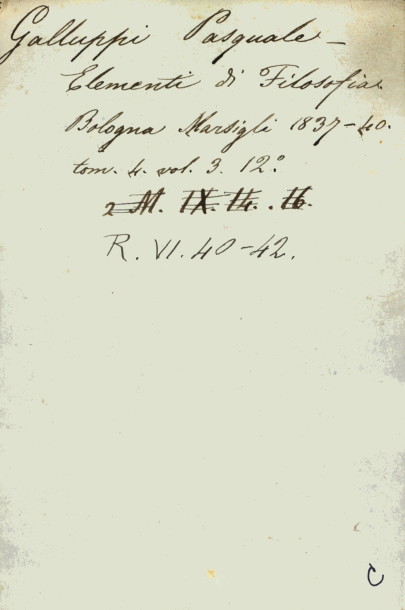 Galluppi Pasquale –
Elementi di Filosofia.
Bologna Marsigli 1837-40.
tom. 4. vol. 3. 12.º
2 M. IX. 14. . 16.
R. VI. 40-42.
C